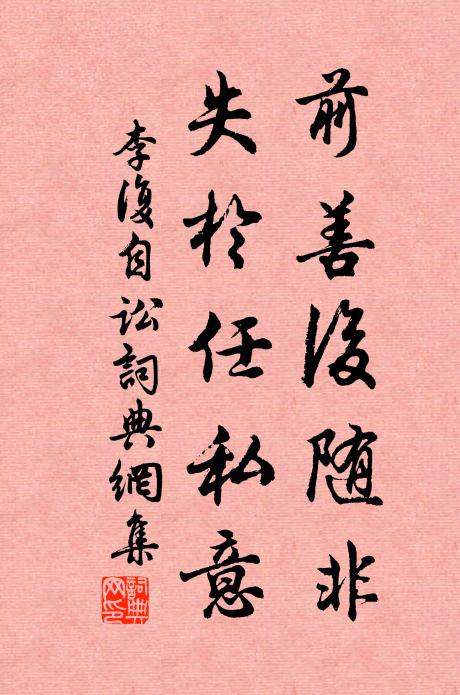 前善後随非
失於任私意
李復自訟詞典網集
詞典網印